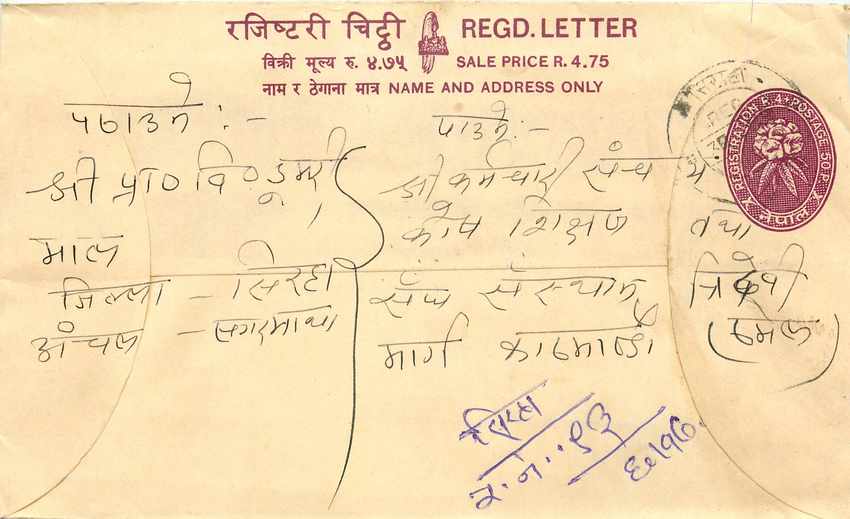 रजिष्टरी चिट्ठी REGD. LETTER
विक्री मूल्य रु. ४.७५ SALE PRICE R. 4.75
नाम र ठेगाना मात्र NAME AND ADDRESS ONLY
पठाउने :-
श्री प्रा० वि० डुमरी
माल
जिल्ला - सिरहा
अंचल - सगरमाथा
पाउने :-
श्री कर्मचारी संचय
कोष शिक्षण तथा
संघ संस्थान त्रिदेवी
मार्ग काठमाण्डौ (ठमेल)
सिरहा
र. नं.
REGISTRATION R.4 + POSTAGE 50 P.
नेपाल